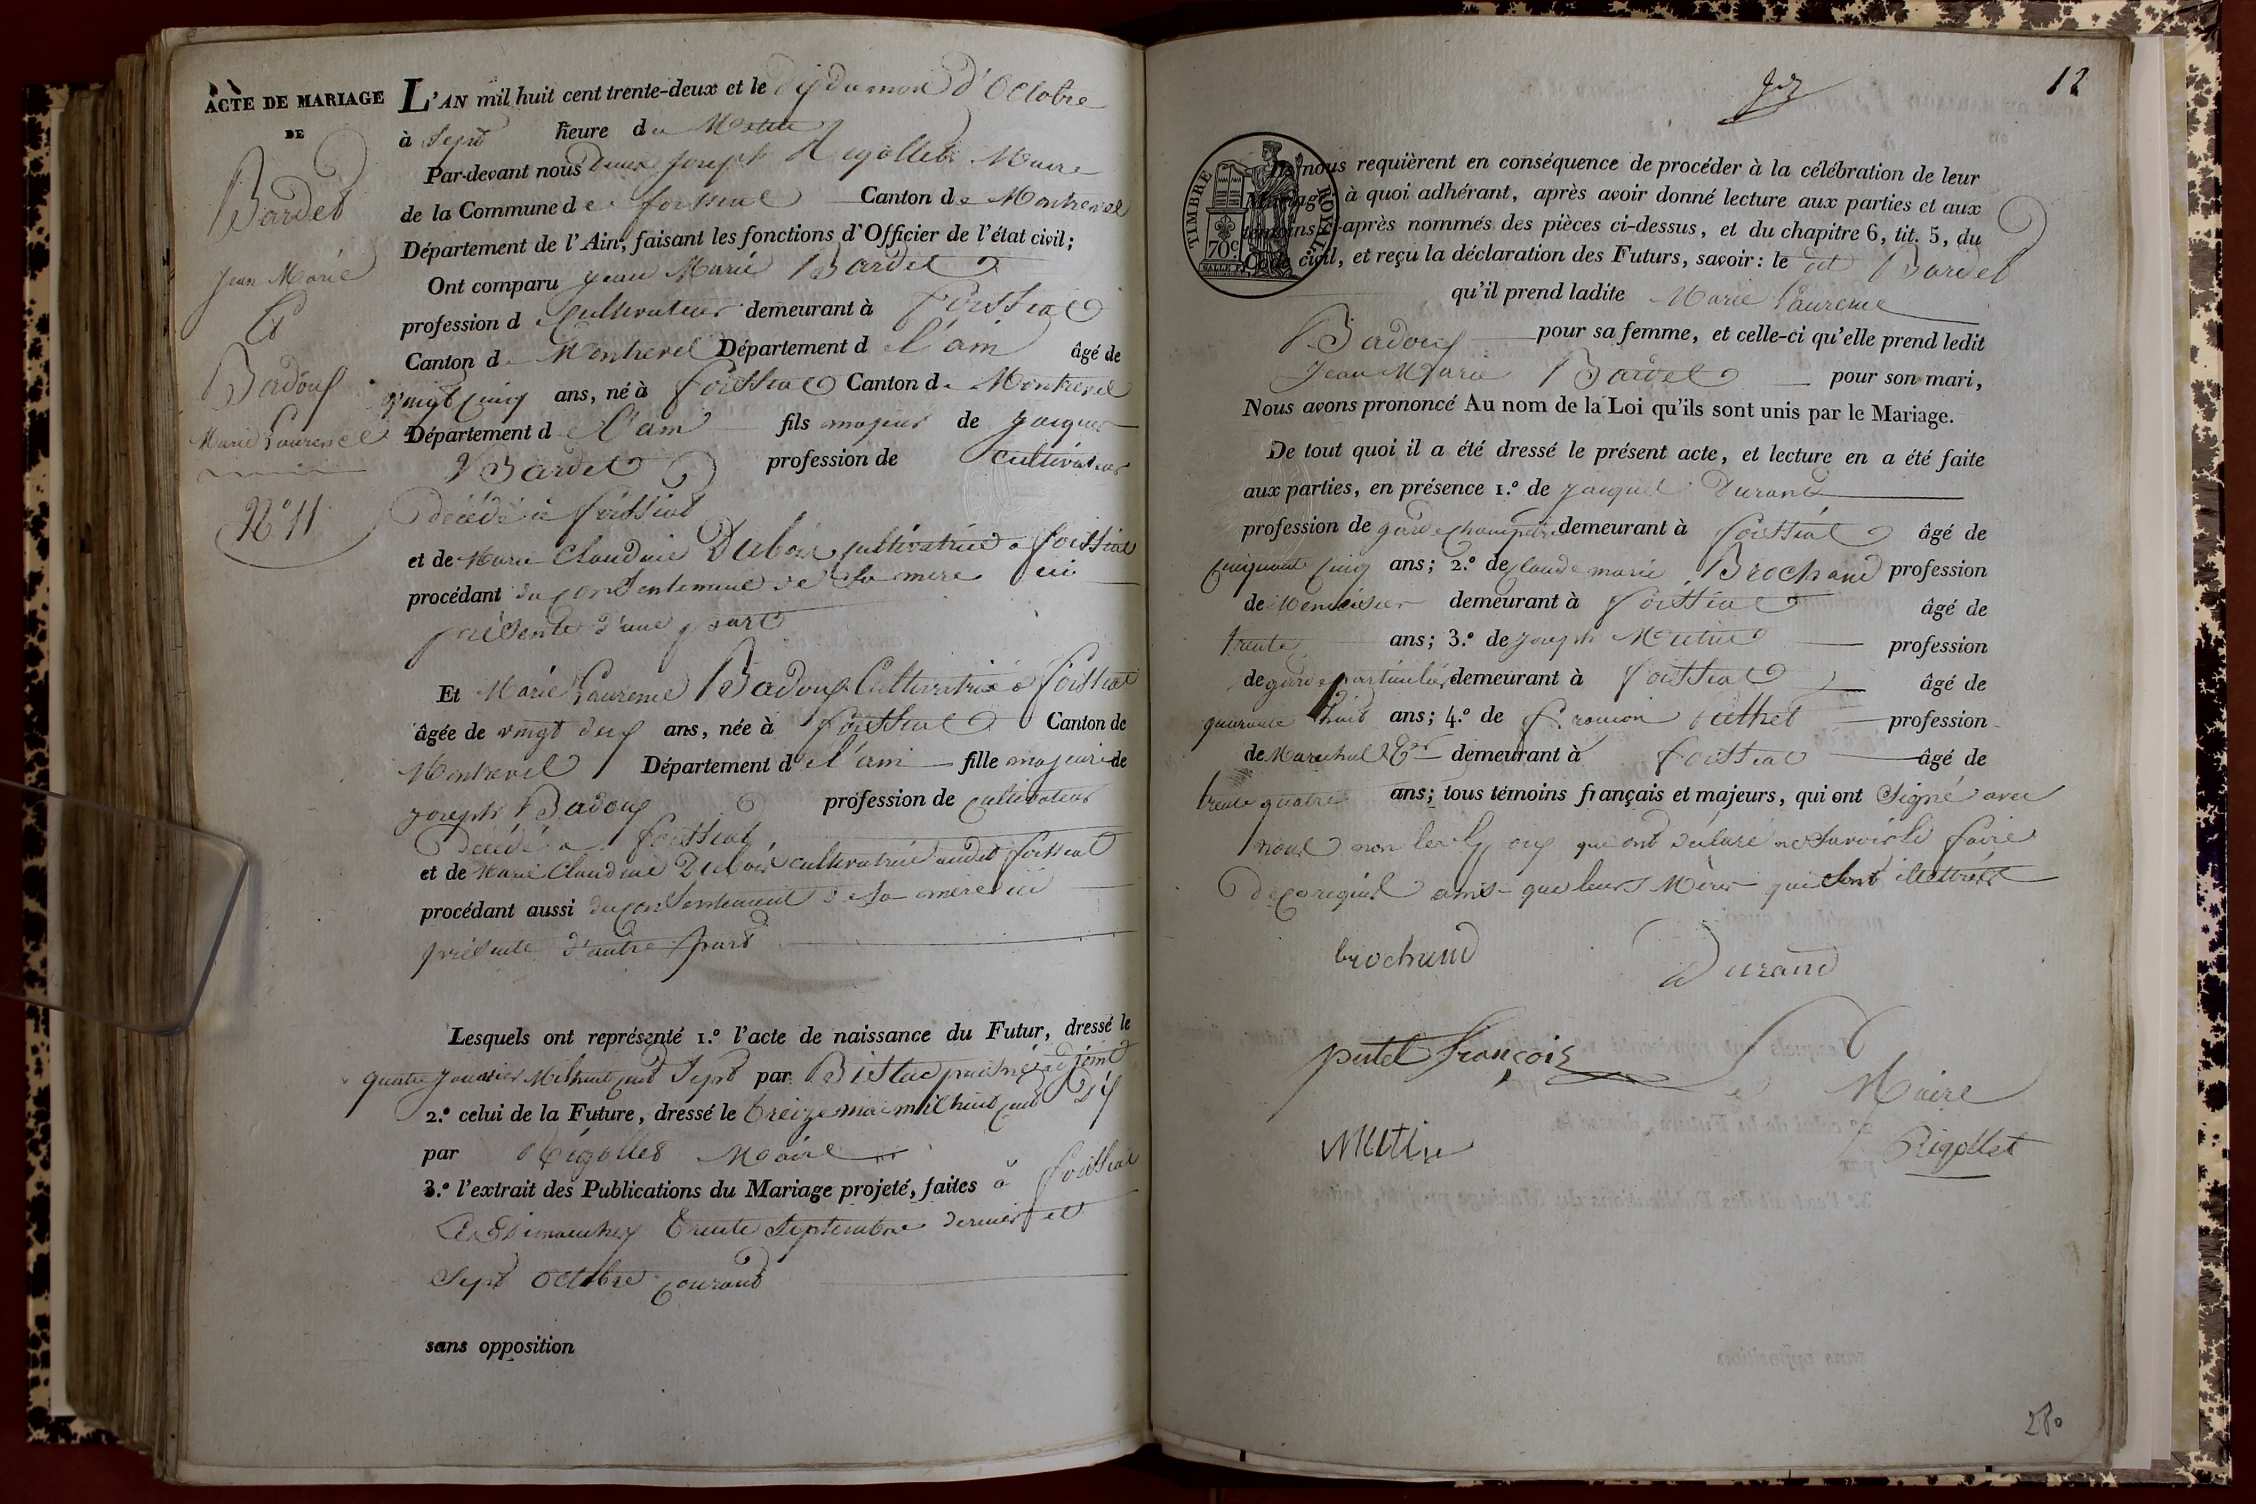 ACTE DE MARIAGE
DE
Bardet
Jean Marie
Et
Badoux
Marie Laurence
N.º 11
L'AN mil huit cent trente-deux et le dix du mois d'Octobre
à Sept heure du Matin
Par-devant nous Joseph Rigollet Maire
de la Commune de foissiat Canton de Montrevel
Département de l'Ain, faisant les fonctions d'Officier de l'état civil;
Ont comparu Jean Marie Bardet
profession de Cultivateur demeurant à foissiat
Canton de Montrevel Département de l'ain âgé de
vingt cinq ans, né à foissiat Canton de Montrevel
Département de l'ain fils majeur de Jacques
Bardet profession de cultivateur
décédé à foissiat
et de Marie Claudine Dubois cultivatrice à foissiat
procédant du consentement de sa mere ici
présente d'une part
Et Marie Laurence Badoux Cultivatrice à foissiat
âgée de vingt deux ans, née à foissiat Canton de
Montrevel Département de l'ain fille majeure de
joseph Badoux profession de cultivateur
décédé à foissiat
et de Marie Claudine Dubois cultivatrice audit foissiat
procédant aussi du consentement de sa mere ici
présente d'autre part
Lesquels ont représenté 1.º l'acte de naissance du Futur, dressé le
quatre janvier Mil huit cent Sept par adjoint
2.º celui de la Future, dressé le treize mai mil huit cent dix
par Rigollet Maire
3.º l'extrait des Publications du Mariage projeté, faites à foissiat
Les Dimanches trente Septembre dernier et
Sept Octobre courant
sans opposition
12
TIMBRE ROYAL
70c
Ils nous requièrent en conséquence de procéder à la célébration de leur
Mariage, à quoi adhérant, après avoir donné lecture aux parties et aux
témoins ci-après nommés des pièces ci-dessus, et du chapitre 6, tit. 5, du
Code civil, et reçu la déclaration des Futurs, savoir: le dit Bardet
qu'il prend ladite Marie Laurence
Badoux pour sa femme, et celle-ci qu'elle prend ledit
Jean Marie Bardet pour son mari,
Nous avons prononcé Au nom de la Loi qu'ils sont unis par le Mariage.
De tout quoi il a été dressé le présent acte, et lecture en a été faite
aux parties, en présence 1.º de Jacques Durand
profession de garde champetre demeurant à foissiat âgé de
cinquante cinq ans; 2.º de Claude marie Brochand profession
de Menuisier demeurant à foissiat âgé de
trente ans; 3.º de joseph Mutin profession
de garde particulier demeurant à foissiat âgé de
quarante huit ans; 4.º de françois profession
de Marechal demeurant à foissiat âgé de
trente quatre ans; tous témoins français et majeurs, qui ont Signé avec
nous non les Epoux qui ont déclaré ne Savoir le faire
de ce requis ainsi que leurs Mères qui sont illettrées
brochand
Durand
françois
Le Maire
Mutin
Rigollet
280
sans opposition